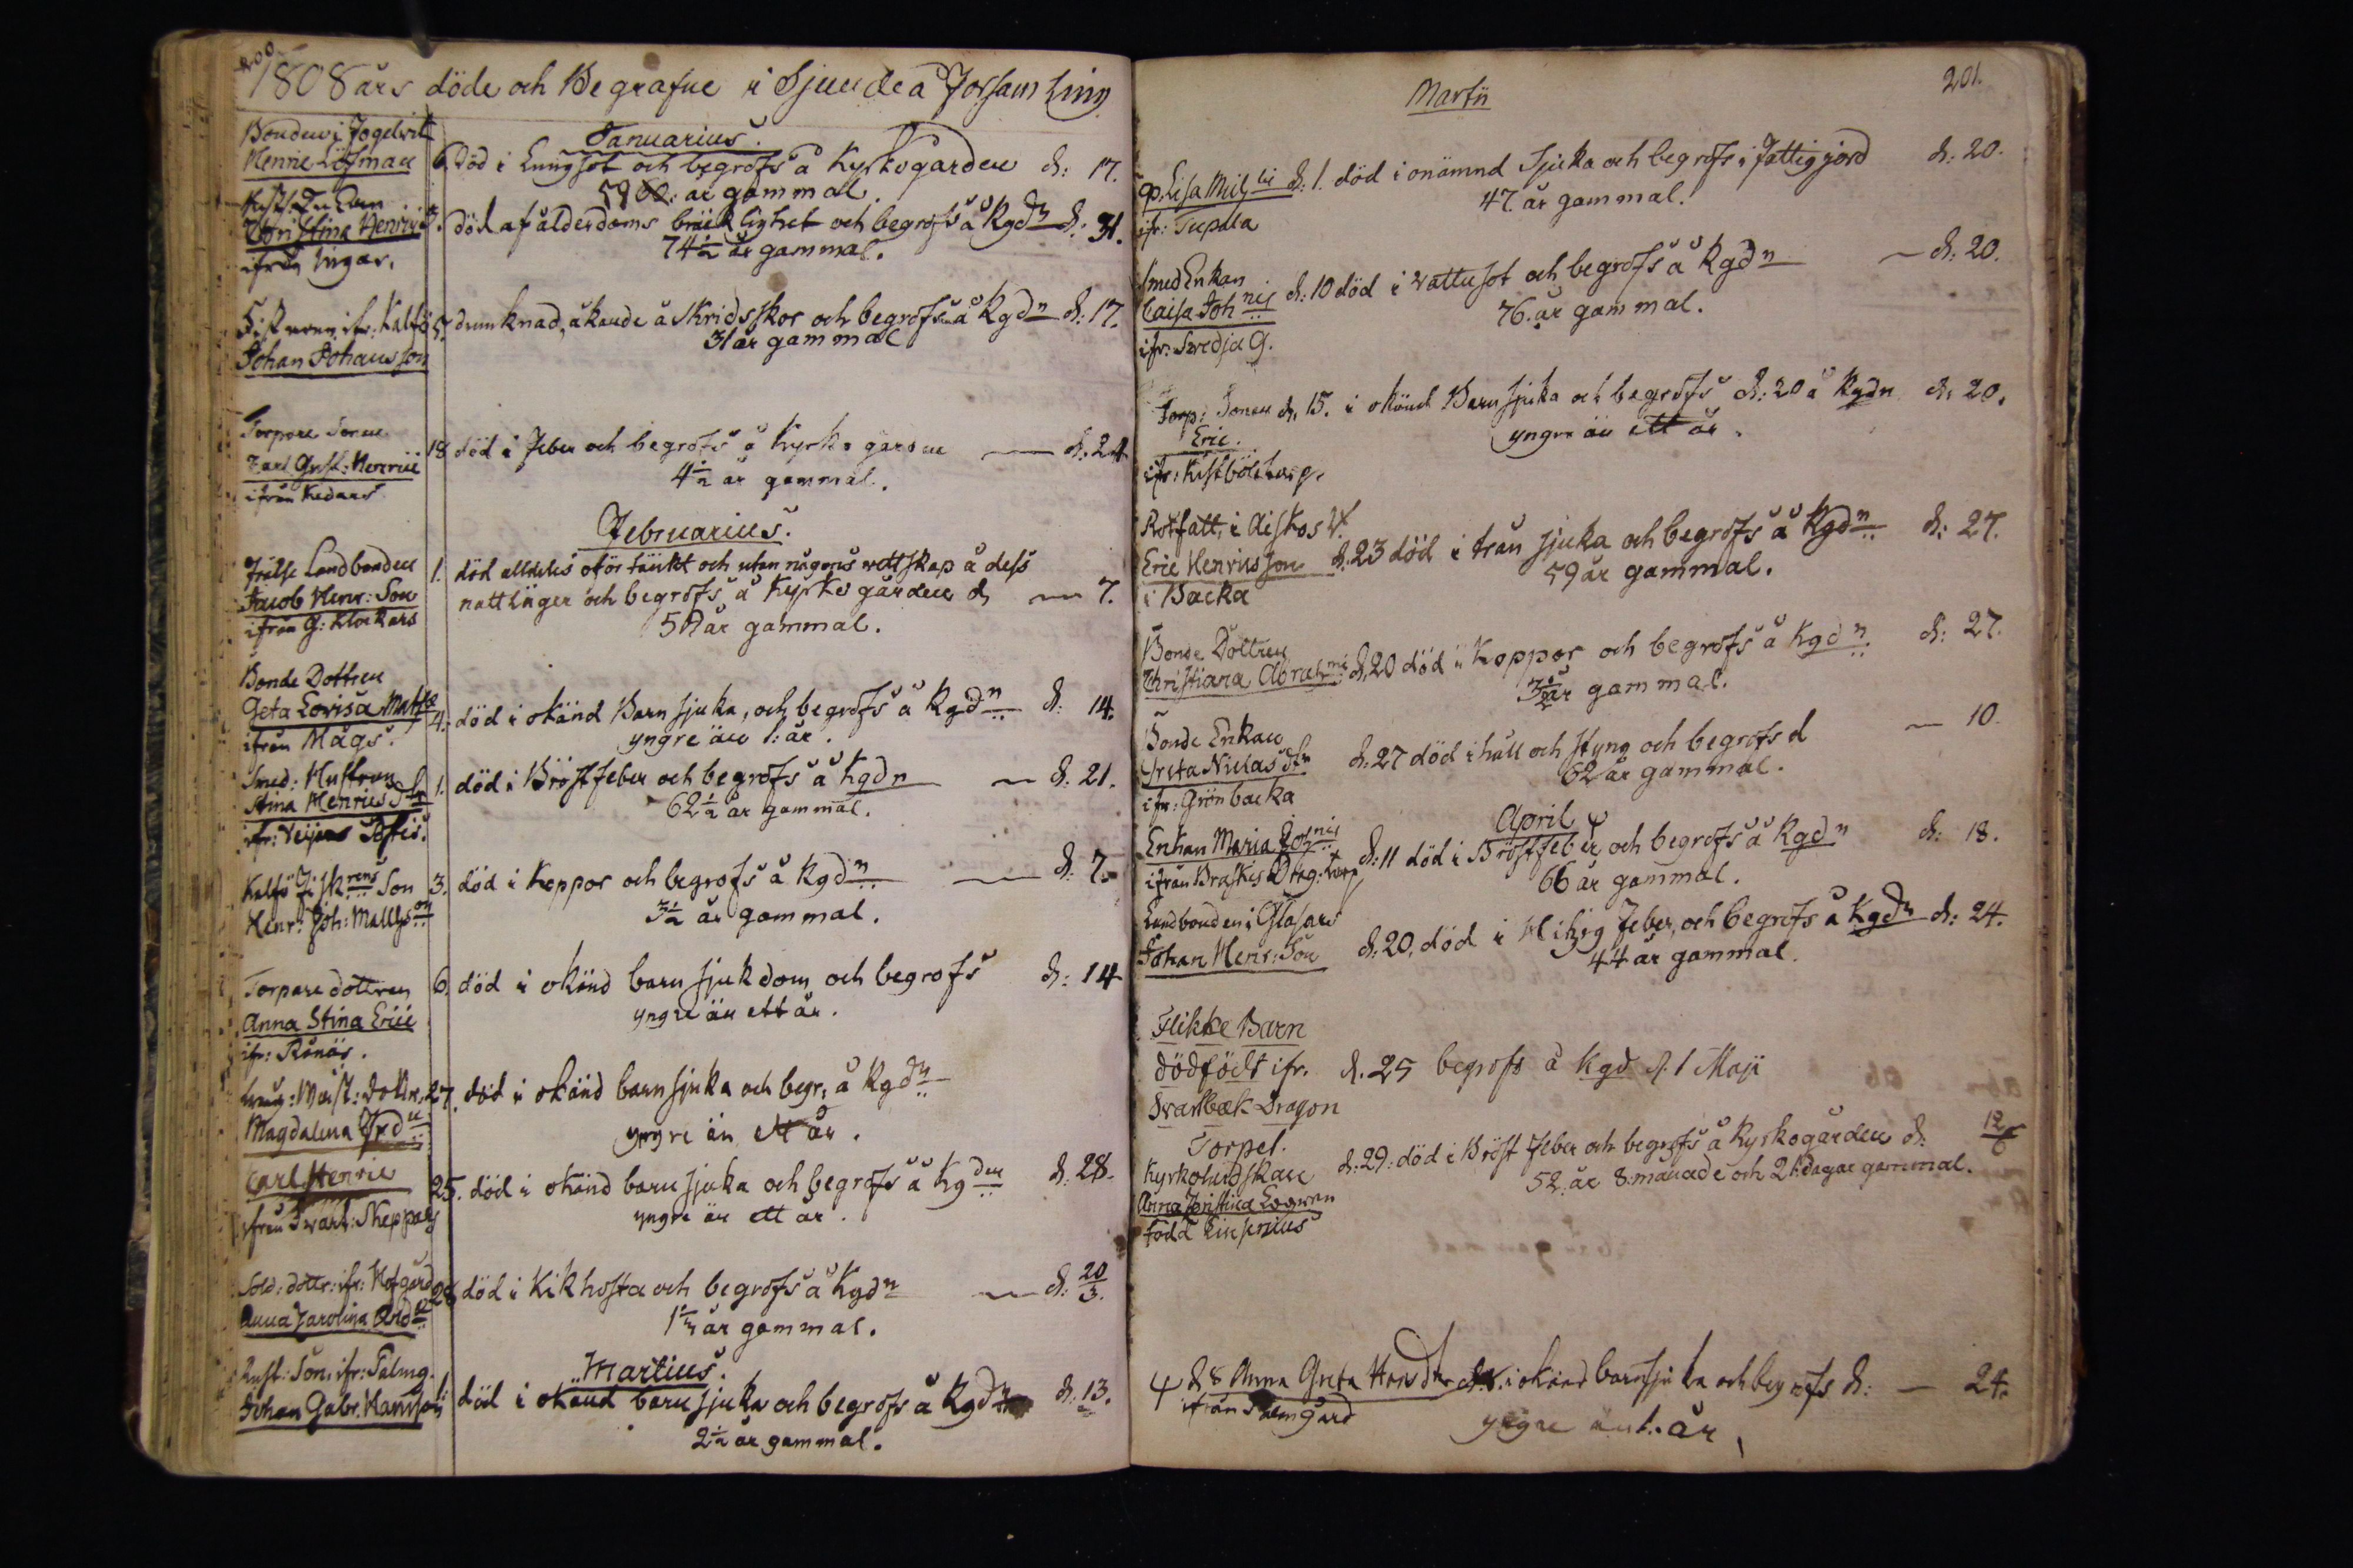 200
1808 års döde och Begrafne i Sjundeå Forsamling
Januarius.
Bonden i Fogelvik
Henric Löfman 6. död i Lungsot och begrofs å Kyrkogården d: 17.
59 år gammal.
Christina Henrici 3. död af ålderdoms bräcklighet och begrofs å Kgdn d: 31.
ifrån Ingar. 74½ år gammal.
Fiskaren ifr: Kalfö 5. drunknad, åkande å Skridskor och begrofs å Kgdn d: 17.
Johan Johansson 31 år gammal
Torpare Sonen
Carl Gust: Henricii 18 död i Feber och begrofs å Kyrkogården — d. 24
ifrån Kedars 4½ år gammal.
Februarius.
Frälse Landbonden 1. död alldeles oförtänkt och utan någons vettskap å dess
Jacob Henr: Son nattläger och begrofs å Kyrkogården d, — 7.
ifrån G: Klockars 50 år gammal.
Bonde Dottren
Greta Lovisa Matts 4. död i okänd Barnsjuka, och begrofs å Kgdn d: 14.
ifrån Mågs. yngre än 1. år.
Smed: Hustrun
Stina Henrics Dr 1. död i Bröstfeber och begrofs å Kgdn — d: 21.
ifr: 62½ år gammal.
Kalfö Fiskrens Son 3. död i Koppor och begrofs å Kgdn — d: 7.
Henr: Joh: Mattson 3½ år gammal.
Torpare dottren 6. död i okänd barn sjukdom och begrofs d: 14
Anna Stina Erici yngre än ett år.
ifr: Rånäs.
27. död i okänd barnsjuka och begr: å Kgdn
Magdalena Frd yngre än ett år.
Carl Henric 25. död i okänd barnsjuka och begrofs å Kgden d: 28.
ifrån Svart: Skeppars yngre än ett år.
Sold: dottr: ifr: Hofgård 28 död i Kikhosta och begrofs å Kgdn — d: 20/3.
Anna Carolina 1½ år gammal.
Martius.
Rust: Son: ifr: Palmg. 1 död i okänd barnsjuka och begrofs å Kgdn d: 13.
Johan Gabr. Hansson 2½ år gammal.
Martii 201.
Lisa Mich lis d: 1. död i onämnd Sjuka och begrofs i Fattig jord d: 20.
ifr: Tupala 47 år gammal.
Smed Enkan
Caisa Joh nis d: 10 död i vattusot och begrofs å Kgdn — d: 20.
ifr: Svedja G. 76. år gammal.
Torp: Sonen d, 15. i okänd Barnsjuka och begrofs d: 20 å Kgdn d, 20.
Eric. yngre än ett år.
ifr: Kistböle torp.
Rotfatt. i Aiskos V.
Eric Henricsson d. 23 död i trånsjuka och begrofs å Kgdn d: 27.
i Backa 59 år gammal.
Bonde Dottren
Christiana Abrah mi d. 20 död i Koppor och begrofs å Kgdn d: 27.
3½ år gammal.
Bonde Enkan
Greta Niclas dtr d: 27 död i håll och styng och begrofs d — 10.
ifr: Grönbacka 62 år gammal.
April
Enkan Maria Joh nis d: 11 död i Bröstfeber och begrofs å Kgdn d: 18.
ifrån Braskis Drag: torp 66 år gammal.
Landbonden i Glasars
Johan Henr: Son d: 20. död i Hitzig Feber, och begrofs å Kgdn d: 24.
44 år gammal.
Flikke Barn
dödfödt ifr. d. 25 begrofs å Kgd d. 1 Maji
Svartbäk Dragon
Torpet.
Kyrkoherdskan d: 29: död i Bröst Feber och begrofs å Kyrkogården d: 12/6
Anna Christina 52. år 8. månade och 21. dagar gammal.
född
d 8 Anna Greta i okänd barnsjuka och begrofs d: — 24.
ifrån Palmgård yngre än 1. år